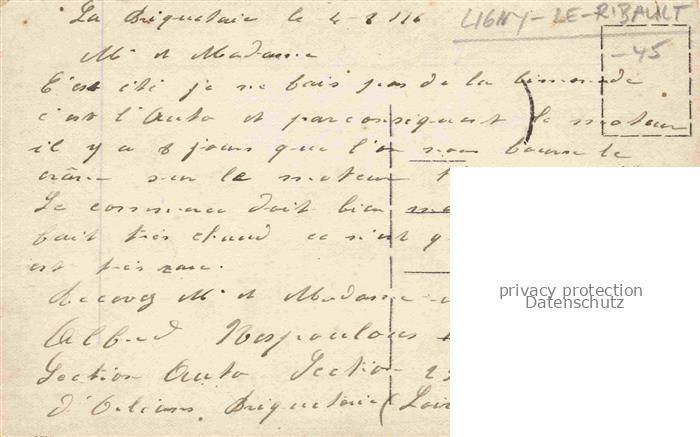 La Briqueterie le 4-8 116
LIGNY-LE-RIBAULT
-45
Mr et Madame
C'est été je ne fais pas de la limonade
c'est l'Auto et par consiquent le moteur
il y a 8 jours que l'on nous bourre le
crâne sur le moteur
Le commerce doit bien
fait très chaud ce n'est
est très rare.
Recevez Mr et Madame
Albert Nespoulous
Section Auto Section
d'Orleans. Briqueterie (Loir
privacy protection
Datenschutz